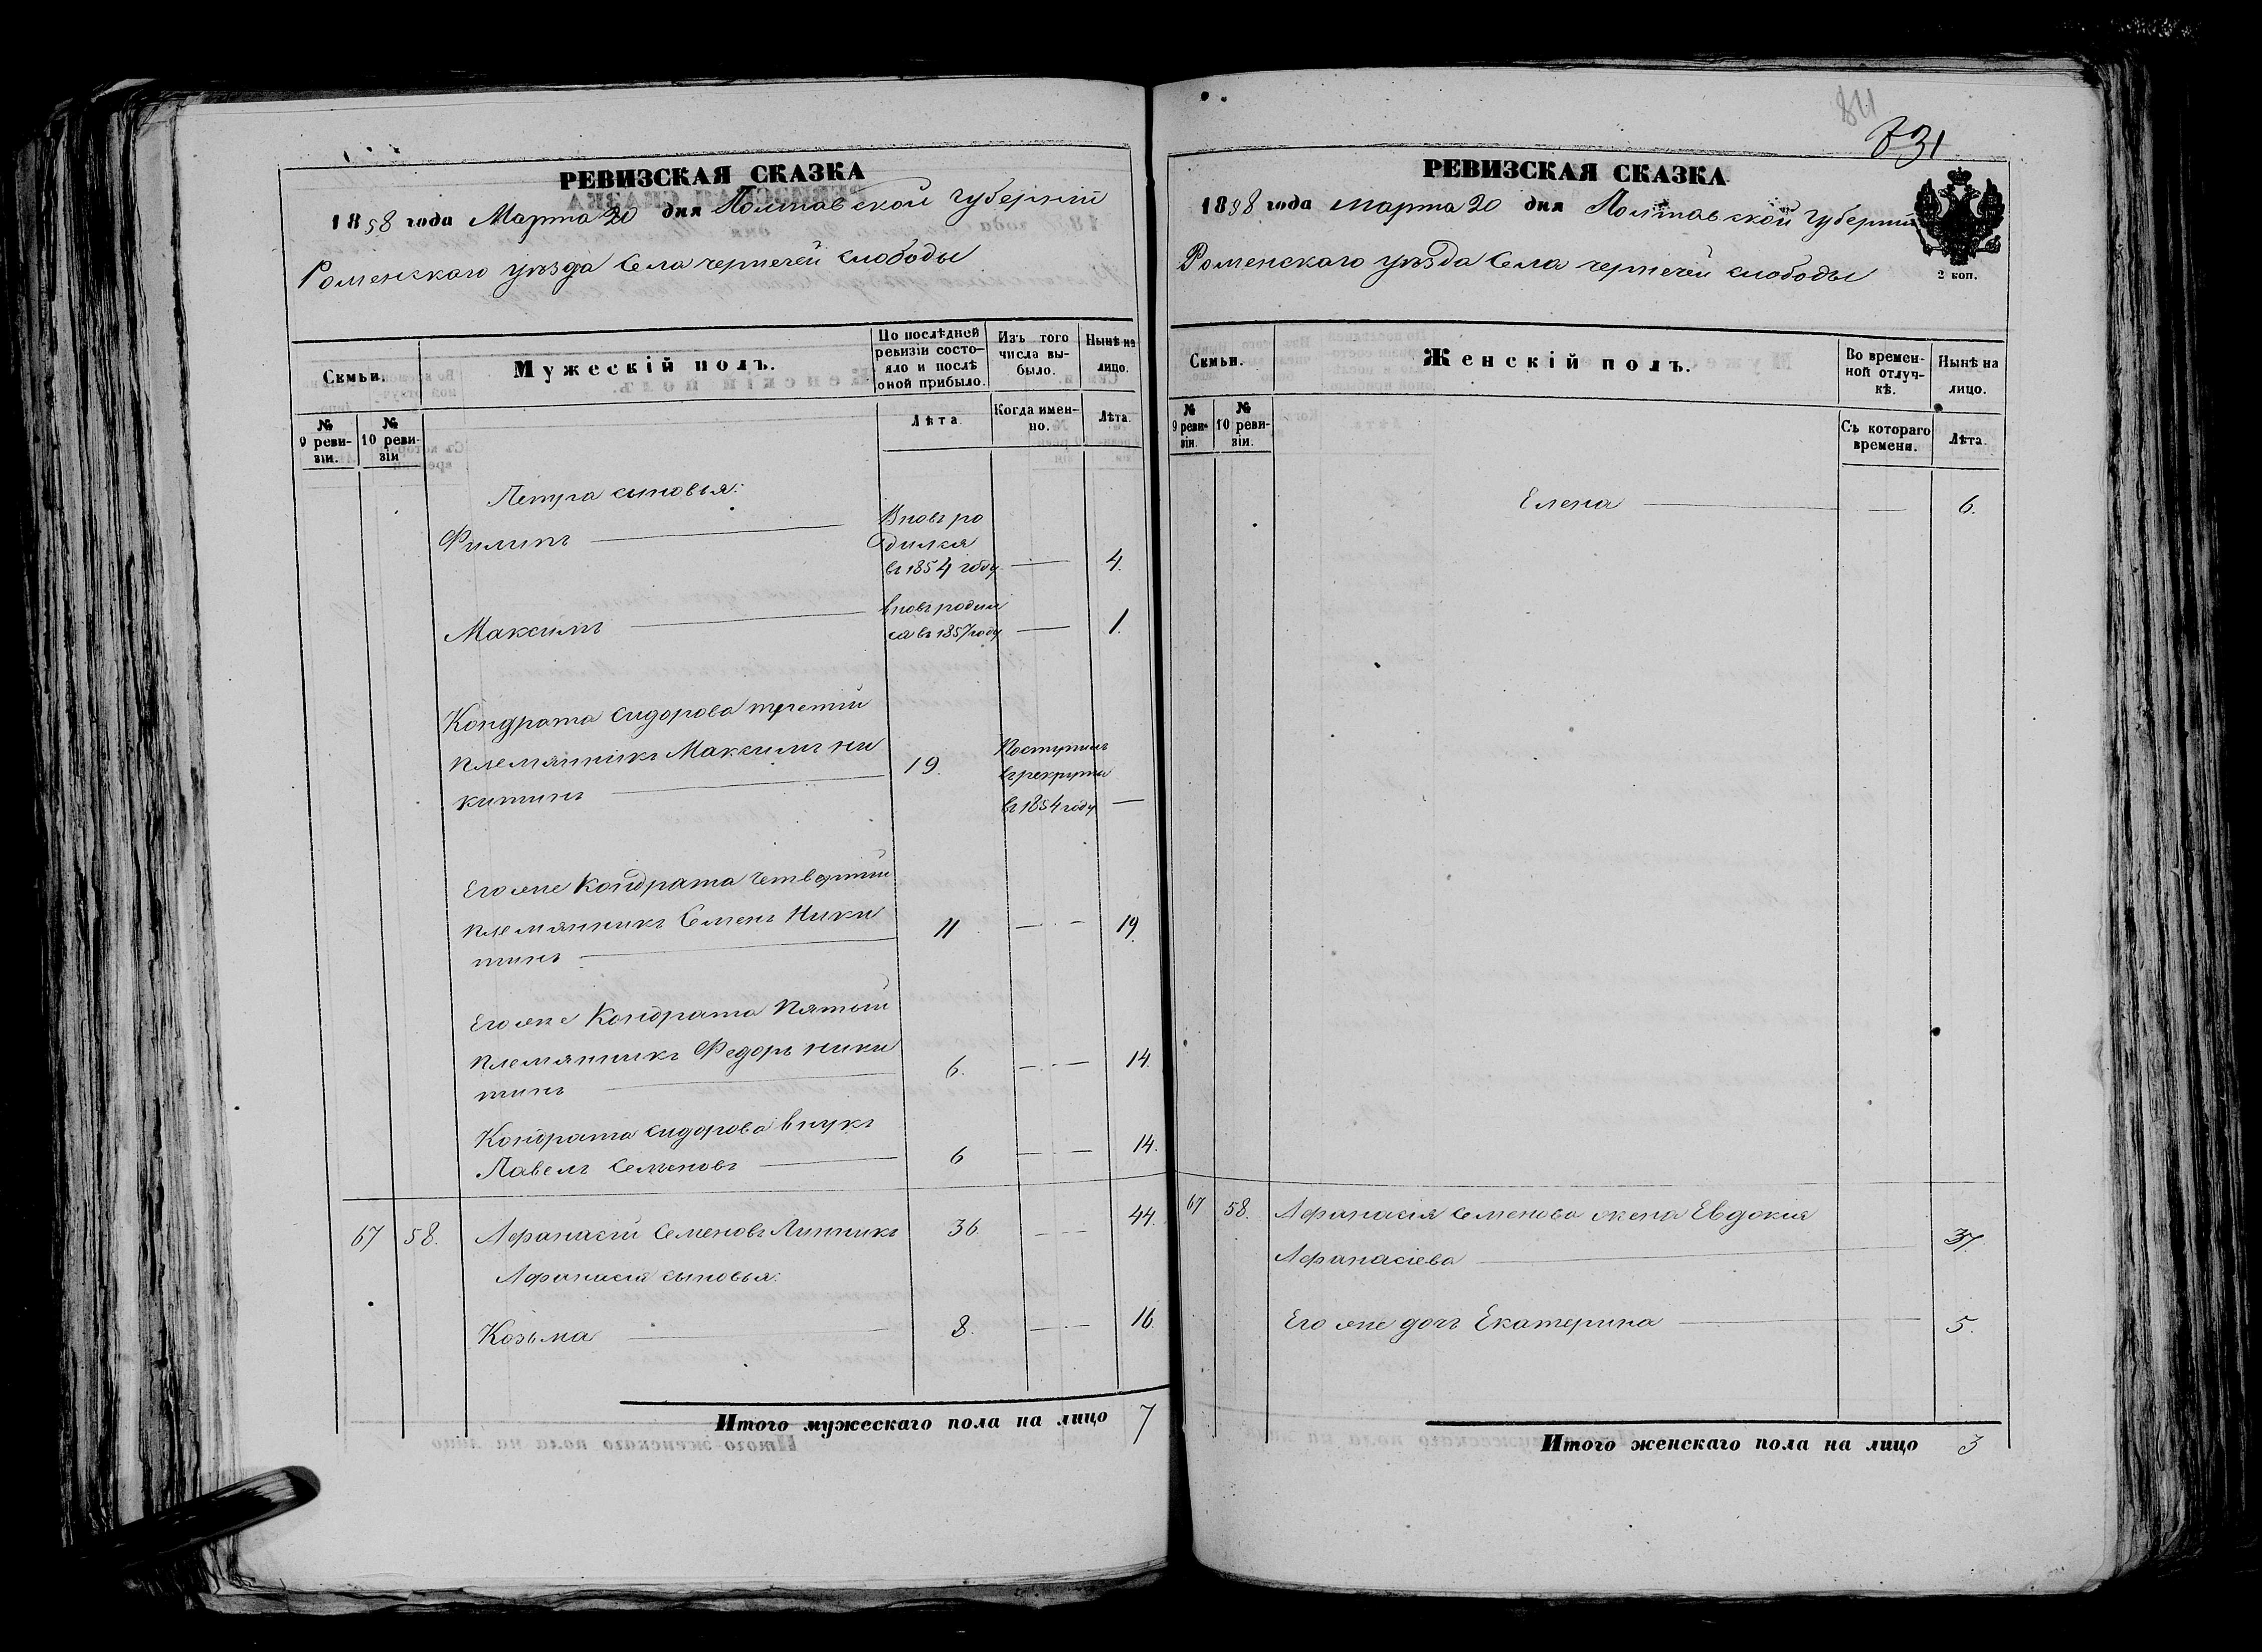 РЕВИЗСКАЯ СКАЗКА
1858 года Марта 20 дня Полтавской губерніи
Роменскаго уѣзда Села чернечей слободы
Семьи.
Мужескій полъ.
По послѣдней ревизіи состояло и послѣ оной прибыло.
Изъ того числа выбыло.
Нынѣ на лицо.
№ 9 ревизіи.
№ 10 ревизіи
Лѣта.
Когда именно.
Лѣта.
Петра сыновья:
Филипъ
Вновь ро
дился
въ 1854 году
4.
Максимъ
вновь родил
ся въ 1857 году
1.
Кондрата Сидорова третій
племянникъ Максимъ ни
китинъ
19.
Поступилъ
въ рекруты
въ 1854 году
Его же Кондрата четвертий
племянникъ Семенъ Ники
тинъ
11
19.
Его же Кондрата пятый
племянникъ Федоръ ники
тинъ
6.
14.
Кондрата Сидорова внукъ
Павелъ Семеновъ
6
14.
67 58. Афанасій Семеновъ Линникъ 36. 44.
Афанасія сыновья:
Козьма 8. 16.
Итого мужескаго пола на лицо 7
731
РЕВИЗСКАЯ СКАЗКА
1858 года марта 20 дня Полтавской губерніи
Роменскаго уѣзда Села чернечей слободы
2 коп.
Семьи.
Женскій полъ.
Во временной отлучкѣ.
Нынѣ на лицо.
№ 9 ревизіи.
№ 10 ревизіи.
Съ котораго времени.
Лѣта.
Елена 6.
67 58. Афанасія Семенова жена Евдокия
Афанасіева 37.
Его же дочь Екатерина 5.
Итого женскаго пола на лицо 3